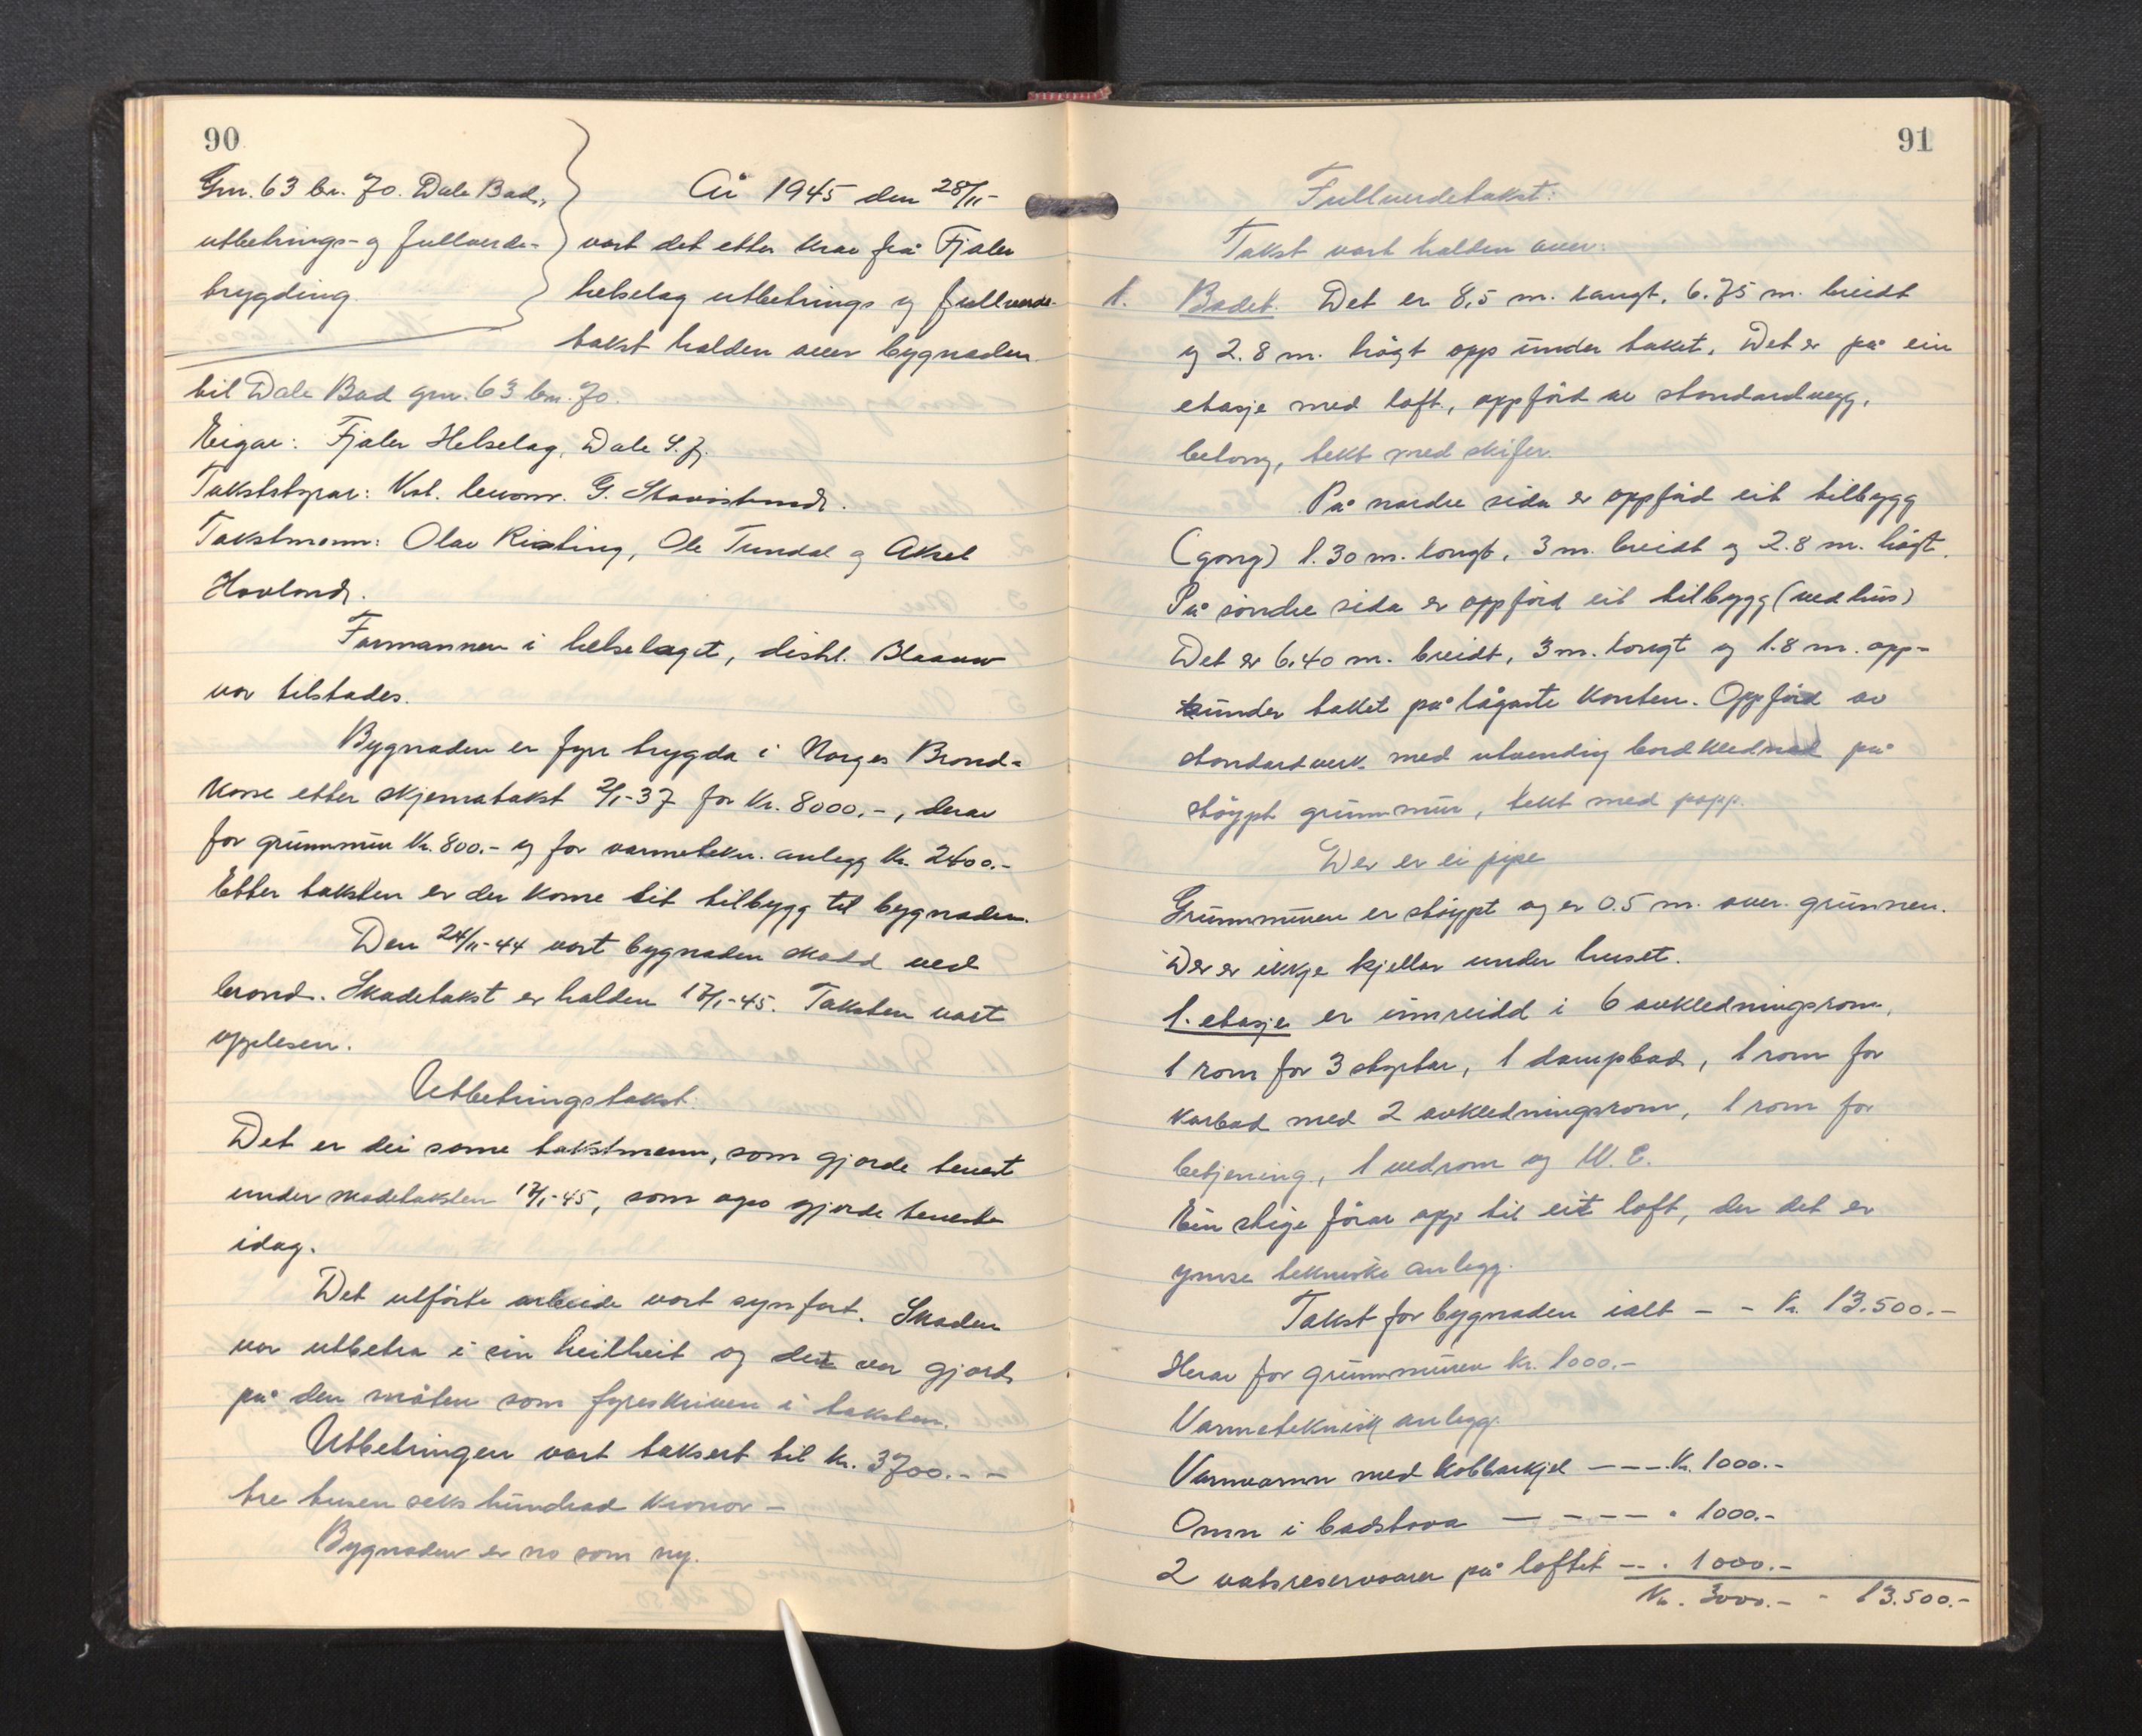 90
Gnr. 63 br. 70. Dale Bad,
utbetrings- og fullverde-
trygding.
År 1945 den 28/11-
vart det etter krav frå Fjaler
helselag utbetrings og fullverde-
takst halden over bygnaden
til Dale Bad gnr. 63 bnr. 70.
Eigar: Fjaler Helselag, Dale S.fj.
Takststyrar: Kst. lensm. G.
Takstmenn: Olav Risting, Ole Tundal og Aksel
Hovland.
Formannen i helselaget, distl. Blaauw
var tilstades.
Bygnaden er fyrr trygda i Norges Brand-
kasse etter skjematakst 2/1-37 for kr. 8000.-, derav
for grunnmur kr. 800.- og for varmetekn. anlegg kr. 2400.-
Etter taksten er der kome eit tilbygg til bygnaden.
Den 24/11-44 vart bygnaden skadd ved
brand. Skadetakst er halden 17/1-45. Taksten vart
opplesen.
Utbetringstakst.
Det er dei same takstmenn, som gjorde tenest
under skadetaksten 17/1-45, som ogso gjorde teneste
idag.
Det utførte arbeide vart synfart. Skaden
var utbetra i sin heilheit og det var gjord
på den måten som fyreskriven i taksten.
Utbetringen vart taksert til kr. 3700.- -
tre tusen seks hundrad kronor -
Bygnaden er no som ny.
91
Fullverdetakst:
Takst vart halden over:
1. Badet. Det er 8,5 m. langt, 6.75 m. breidt
og 2.8 m. høgt opp under taket. Det er på ein
etasje med loft, oppförd av standardvegg,
betong, tekt med skifer.
På nordre sida er oppförd eit tilbygg
(gong) 1.30 m. langt, 3 m. breidt og 2.8 m. högt.
På söndre sida er oppförd eit tilbygg (vedhus)
Det er 6,40 m. breidt, 3 m. langt og 1.8 m. opp-
under taket på lågaste kanten. Oppförd av
standardverk med utvendig bordklednad på
stöypt grunnmur, tekt med papp.
Der er ei pipe
Grunnmuren er støypt og er 0.5 m. over grunnen.
Der er ikkje kjellar under huset.
1. etasje er innreidd i 6 avkledningsrom,
1 rom for 3 styrtar, 1 dampbad, 1 rom for
karbad med 2 avkledningsrom, 1 rom for
betjening, 1 vedrom og W. C.
Ein stige förar opp til eit loft, der det er
ymse tekniske anlegg.
Takst for bygnaden ialt - - kr. 13.500.-
Herav for grunnmuren kr. 1000.-
Varmeteknisk anlegg.
Varmvamn med kobbarkjel - - - - kr. 1000.-
Omn i badstova - - - - - " 1000.-
2 vatsreservoarer på loftet - - . 1000.-
Kr. 3000.- - 13.500.-